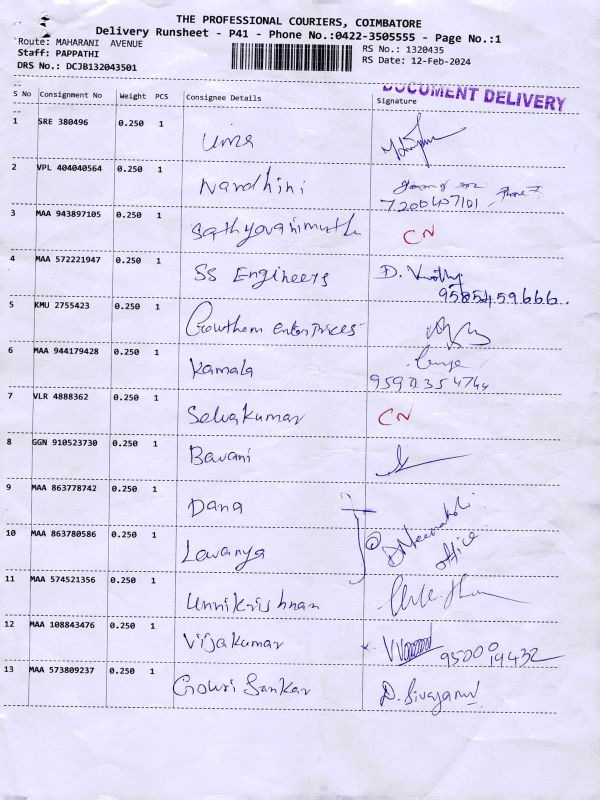 THE PROFESSIONAL COURIERS, COIMBATORE
Delivery Runsheet - P41 - Phone No.:0422-3505555 - Page No.:1
Route: MAHARANI AVENUE
RS No.: 1320435
Staff: PAPPATHI
RS Date: 12-Feb-2024
DRS No.: DCJB132043501
DOCUMENT DELIVERY
S No Consignment No Weight PCS Consignee Details Signature
1 SRE 380496 0.250 1 Uma
2 VPL 404040564 0.250 1 Nandhini
7200407101
3 MAA 943897105 0.250 1 Sathyavanimuthu CN
4 MAA 572221947 0.250 1 SS Engineers D.
9585459666..
5 KMU 2755423 0.250 1 Gowtham enterprices
6 MAA 944179428 0.250 1 Kamala
7 VLR 4888362 0.250 1 Selvakumar CN
8 GGN 910523730 0.250 1 Bavani
9 MAA 863778742 0.250 1 Dana
10 MAA 863780586 0.250 1 Lavanya @ office
11 MAA 574521356 0.250 1 Unnikrishnan
12 MAA 108843476 0.250 1 Vijakumar 9500019432
13 MAA 573809237 0.250 1 Gowri Sankar